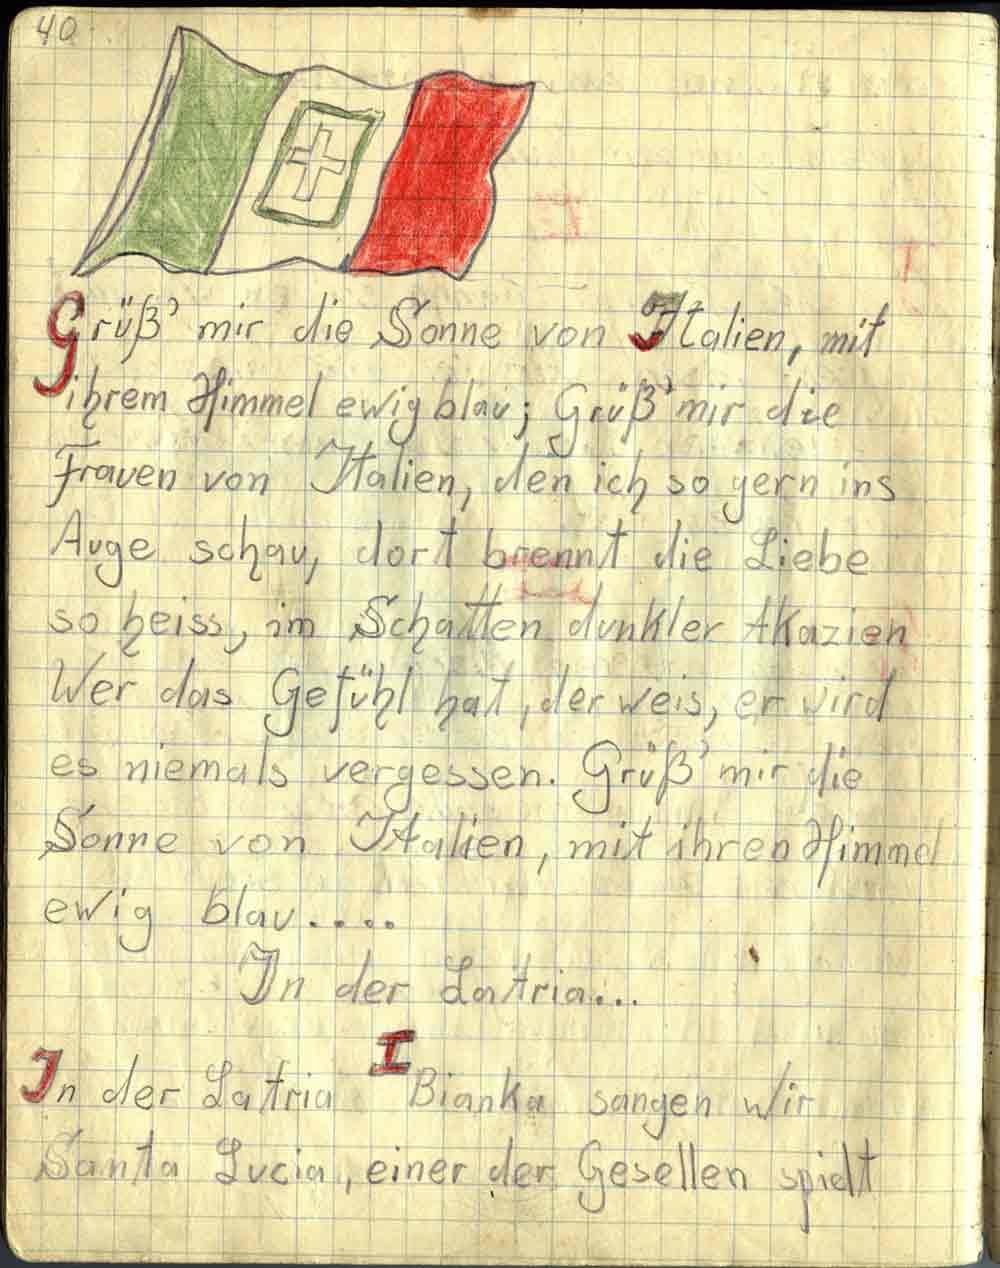 40
Grüß' mir die Sonne von Italien, mit
ihrem Himmel ewig blau; Grüß' mir die
Frauen von Italien, den ich so gern ins
Auge schau, dort brennt die Liebe
so heiss, im Schatten dunkler Akazien
Wer das Gefühl hat, der weis, er wird
es niemals vergessen. Grüß' mir die
Sonne von Italien, mit ihren Himmel
ewig blau.....
In der Latria...
I
In der Latria Bianka sangen wir
Santa Lucia, einer der Gesellen spielt